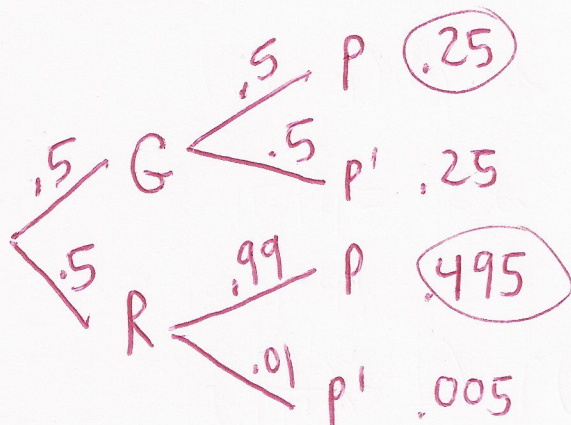 .5 P .25
.5 G .5 P' .25
.5 R .99 P .495
.01 P' .005